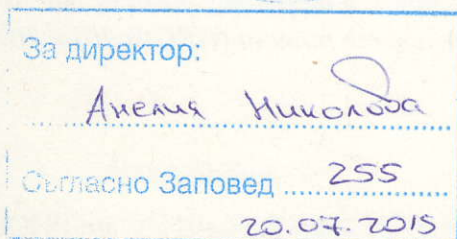 За директор:
Анелия Николова
Съгласно Заповед 255
20.07.2015